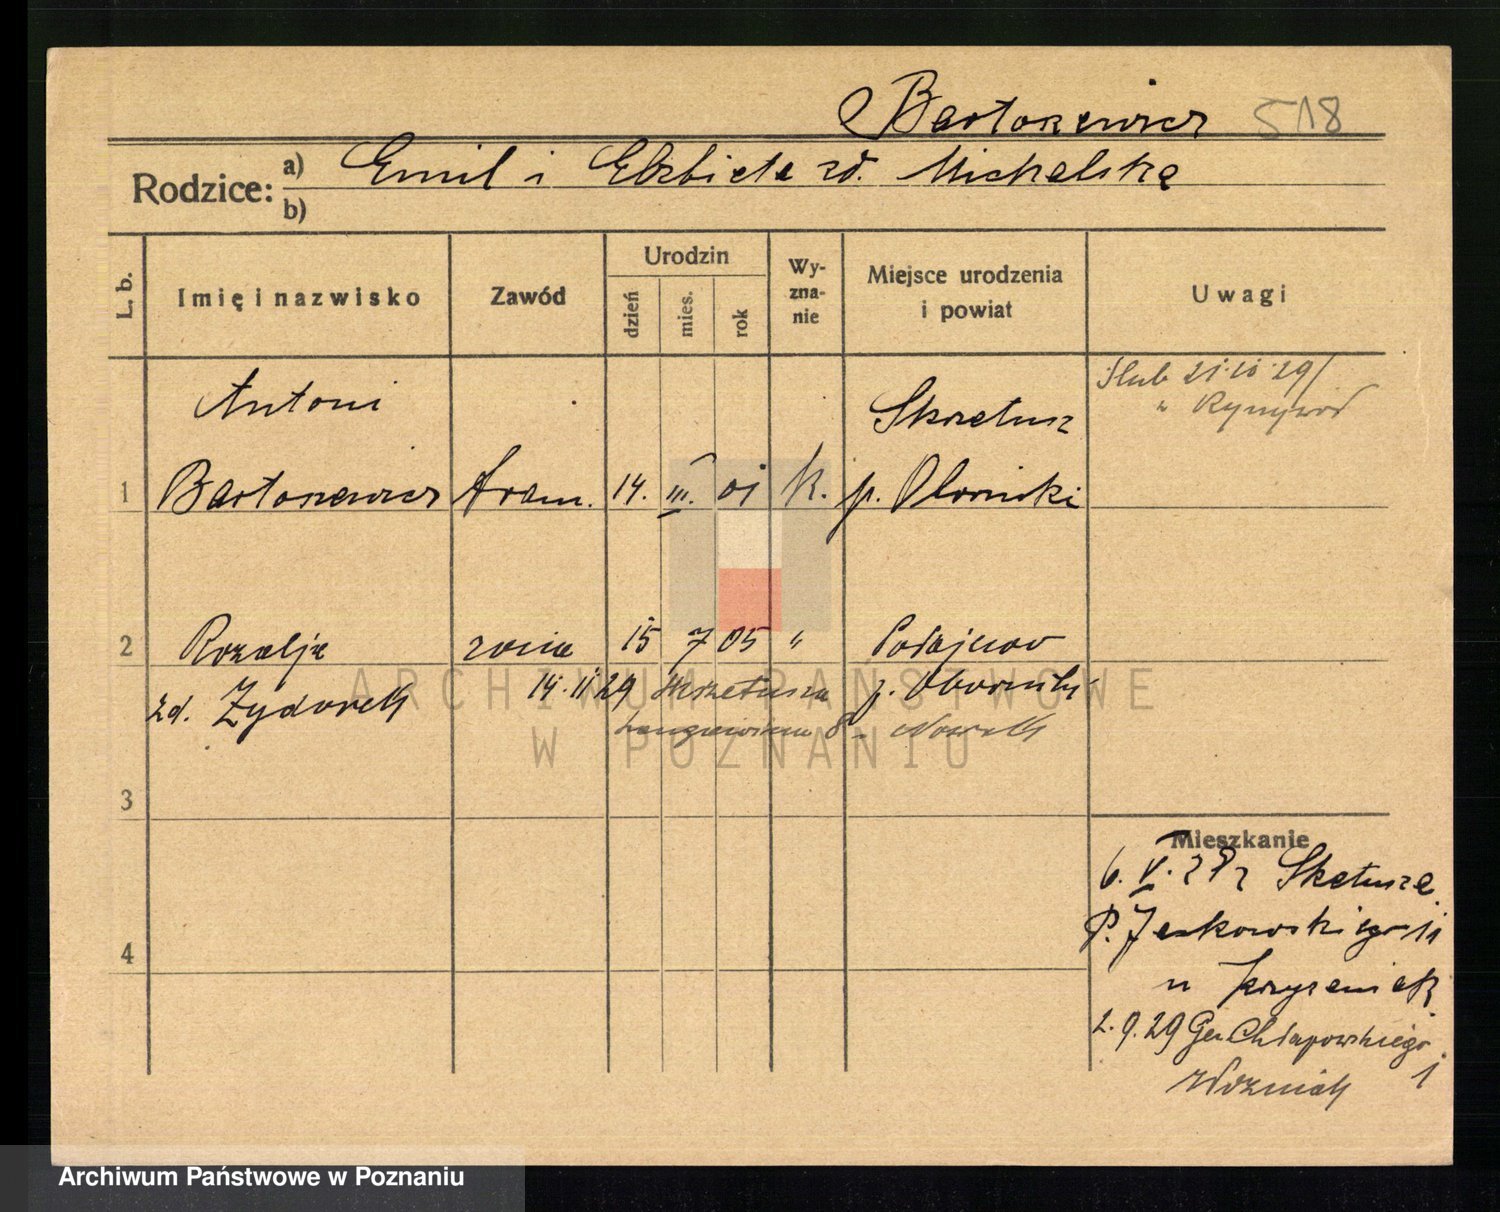 Bartosiewicz 518
Rodzice: a) Emil i Elżbieta zd. Michalska
b)
L. b. Imię i nazwisko Zawód Urodzin dzień mies. rok Wyznanie Miejsce urodzenia i powiat Uwagi
Antoni Skrzetusz Ślub 21.10.29
w Ryczywół
1 Bartosiewicz 14. III. 01 k. p. Obornicki
2 Rozalja żona 15 7 05 " Połajewo
zd. Zydorek 14.11.29 Skrzetusza p. Oborniki
8 Nowak
3
Mieszkanie
6. V. 28 z Skrzetusza
P. Jeżkowskiego 11
u
4
2.9.29 Gen Chłapowskiego 1
Woźniak
ARCHIWUM PAŃSTWOWE
W POZNANIU
Archiwum Państwowe w Poznaniu